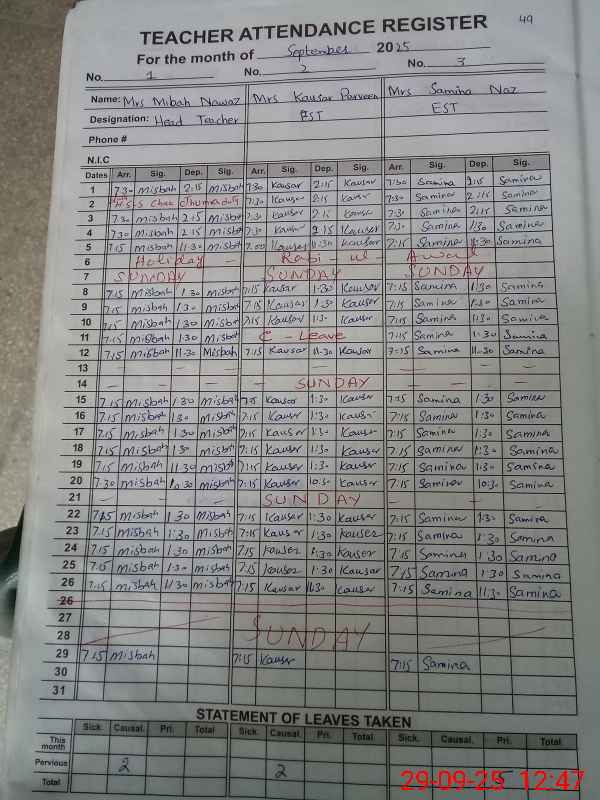 49
TEACHER ATTENDANCE REGISTER
For the month of September 2025
No. 1 No. 2 No. 3
Name: Mrs Mibah Nawaz Mrs Kausar Parveen Mrs Samina Naz
Designation: Head Teacher EST
Phone #
N.I.C
Dates Arr. Sig. Dep. Sig. Arr. Sig. Dep. Sig. Arr Sig. Dep. Sig.
1 7:30 Misbah 2:15 Misbah 7:30 Kausar 2:15 Kausar 7:30 Samina 2:15 Samina
2 7:30 Kausar 2:15 Kausar 7:30 Samina 2:15 Samina
3 7:30 misbah 2:15 Misbah 7:30 Kausar 2:15 Kausar 7:30 Samina 2:15 Samina
4 7:30 misbah 2:15 Misbah 7:30 Kausar 2:15 Kausar 7:30 Samina 1:30 Samina
5 7:15 misbah 11:30 Misbah 7:00 Kauser 11:30 Kausar 7:15 Samina 11:30 Samina
6 Holiday - Rabi - ul - Awal
7 SUNDAY SUNDAY SUNDAY
8 7:15 Misbah 1:30 Misbah 7:15 Kausar 1:30 Kausar 7:15 Samina 1:30 Samina
9 7:15 Misbah 1:30 Misbah 7:15 Kausar 1:30 Kausar 7:15 Samina 1:30 Samina
10 7:15 Misbah 1:30 Misbah 7:15 Kausar 1:30 Kausar 7:15 Samina 1:30 Samina
11 7:15 Misbah 1:30 Misbah C - Leave 7:15 Samina 1:30 Samina
12 7:15 Misbah 11:30 Misbah 7:15 Kausar 11:30 Kausar 7:15 Samina 11:30 Samina
13 — — — — — — —
14 — — — — SUNDAY — — —
15 7:15 Misbah 1:30 Misbah 7:15 Kausar 1:30 Kausar 7:15 Samina 1:30 Samina
16 7:15 Misbah 1:30 Misbah 7:15 Kauser 1:30 Kausar 7:15 Samina 1:30 Samina
17 7:15 Misbah 1:30 Misbah 7:15 Kauser 1:30 Kausar 7:15 Samina 1:30 Samina
18 7:15 Misbah 1:30 Misbah 7:15 Kauser 1:30 Kausar 7:15 Samina 1:30 Samina
19 7:15 Misbah 11:30 misbah 7:15 Kauser 1:30 Kausar 7:15 Samina 1:30 Samina
20 7:30 Misbah 10:30 misbah 7:15 Kausar 10:30 Kausar 7:15 Samina 10:30 Samina
21 — — SUNDAY — —
22 7:15 misbah 1:30 Misbah 7:15 Kausar 1:30 Kauser 7:15 Samina 1:30 Samina
23 7:15 misbah 1:30 Misbah 7:15 Kausar 1:30 Kauser 7:15 Samina 1:30 Samina
24 7:15 misbah 1:30 misbah 7:15 Kauser 1:30 Kauser 7:15 Samina 1:30 Samina
25 7:15 misbah 1:30 misbah 7:15 Kauser 1:30 Kausar 7:15 Samina 1:30 Samina
26 7:15 misbah 11:30 misbah 7:15 Kausar 11:30 Kausar 7:15 Samina 11:30 Samina
26
27
28 SUNDAY
29 7:15 Misbah 7:15 Kausar 7:15 Samina
30
31
STATEMENT OF LEAVES TAKEN
Sick. Causal. Pri. Total Sick. Causal. Pri. Total Sick. Causal. Pri. Total
This month
Pervious 2 2
Total
29-09-25 12:47